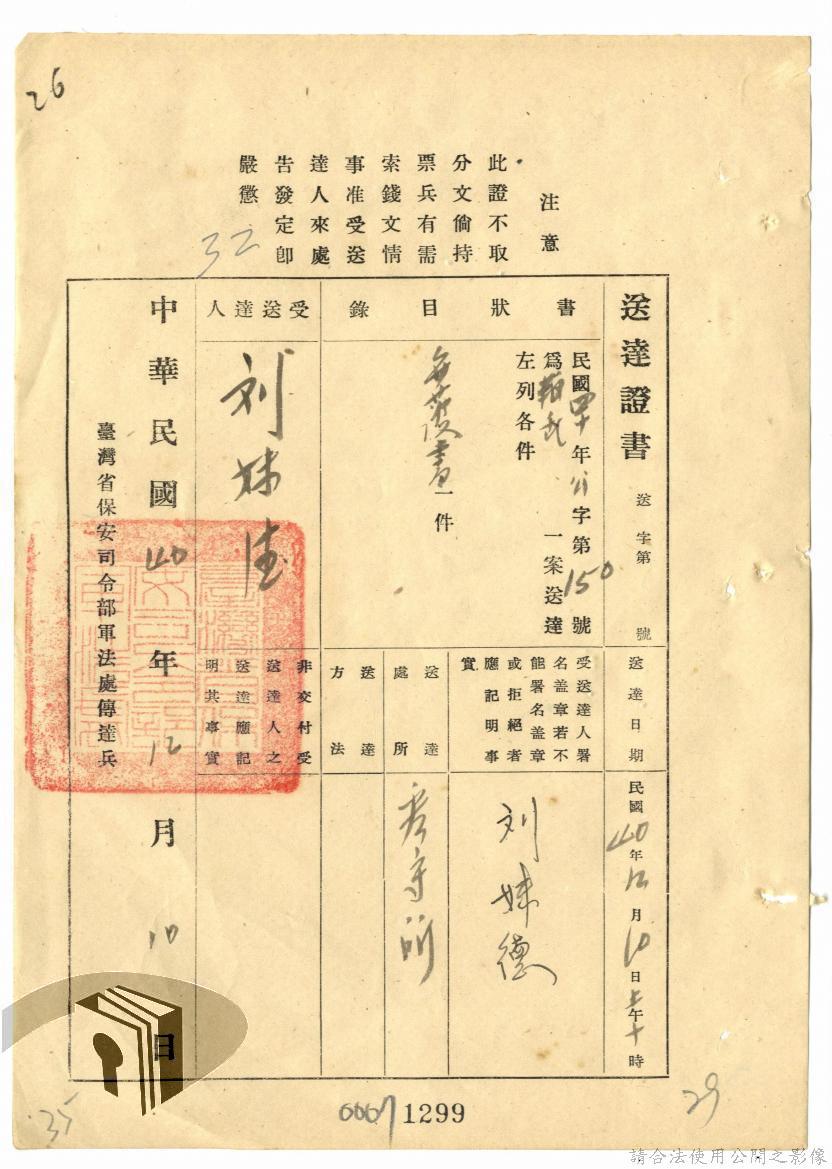 26
注意
此證不取
分文倘持
票兵有需
索錢文情
事准受送
達人來處
告發定卽
嚴懲
32
送達證書
送字第 號
送達日期
民國40年12月10日上午十時
書狀目錄
民國四十年 字第150號
爲 一案送達
左列各件
書一件
受送達人署
名盖章若不
能署名盖章
或拒絕者
應記明事
實
刘妹德
送達
處所
看守所
送達
方法
受送達人
刘妹德
非交付受
送達人之
送達應記
明其事實
中華民國40年12月10日
臺灣省保安司令部軍法處傳達兵
35
0007
1299
29
請合法使用公開之影像